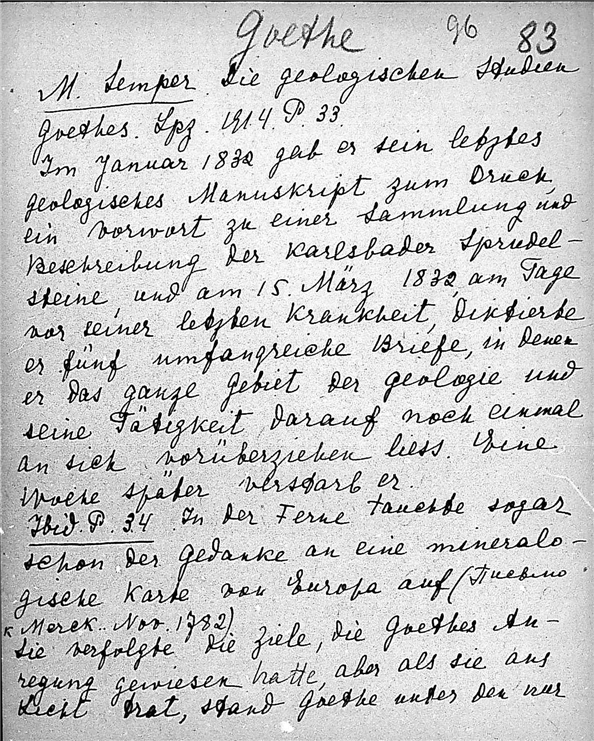 Goethe 96 83
M. Semper. Die geologischen Studien
Goethes. Lpz. 1914. P. 33.
Im Januar 1832 gab er sein letztes
geologisches Manuskript zum Druck,
ein Vorwort zu einer Sammlung und
Beschreibung der Karlsbader Sprudel-
steine, und am 15. März 1832, am Tage
vor seiner letzten Krankheit, diktierte
er fünf umfangreiche Briefe, in denen
er das ganze Gebiet der Geologie und
seine Tätigkeit darauf noch einmal
an sich vorüberziehen liess. Eine
Woche später verstarb er.
Ibid. P. 34 In der Ferne tauchte sogar
schon der Gedanke an eine mineralo-
gische Karte von Europa auf (Письмо
к Merck.. Nov. 1782)
Sie verfolgte die Ziele, die Goethes An-
regung gewiesen hatte, aber als sie ans
Licht trat, stand Goethe unter den nur